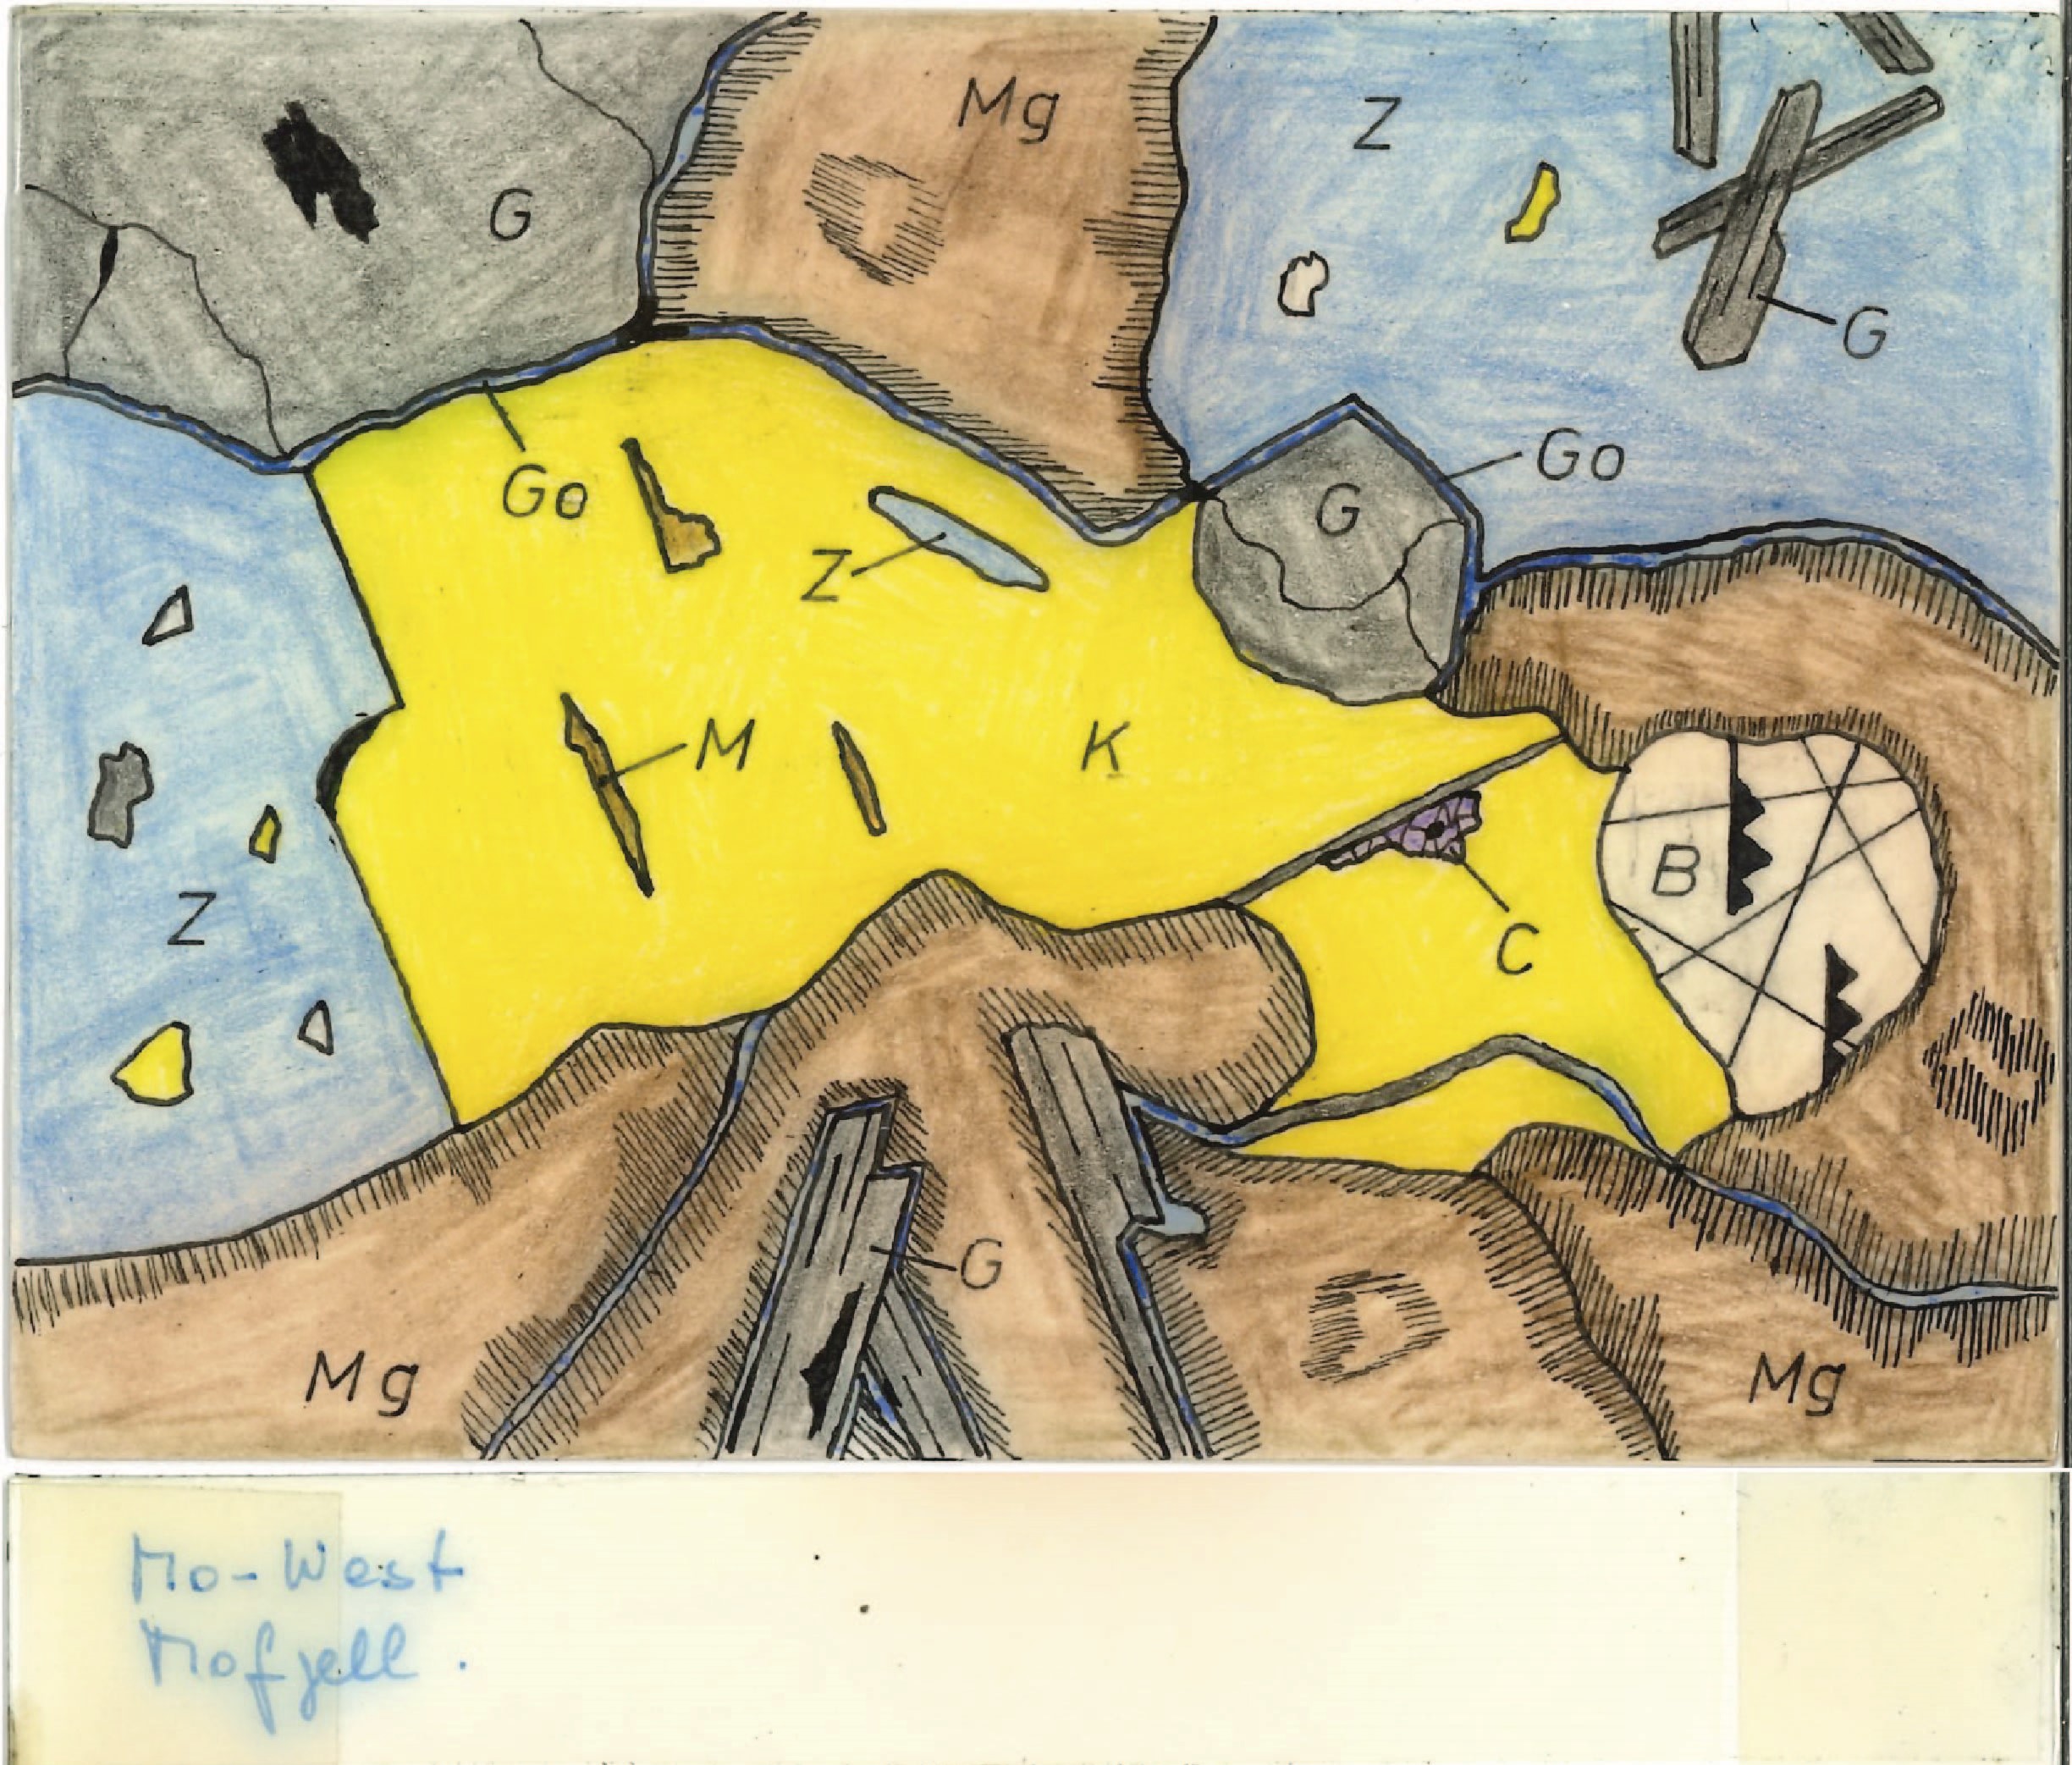 Mg
Z
G
G
Go
G
Go
Z
M
K
B
Z
C
G
Mg
Mg
Mo-West
Mofjell.